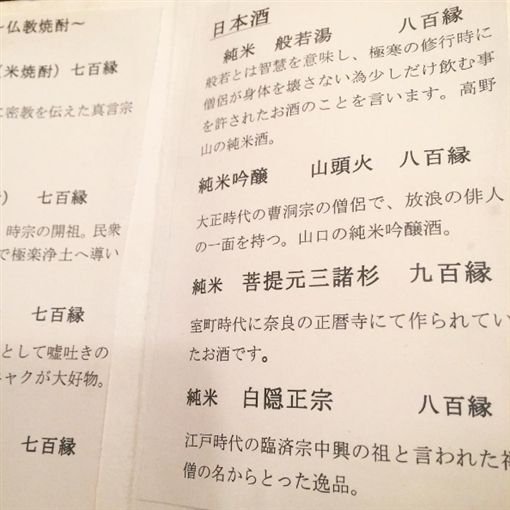 ～仏教焼酎～
米焼酎）七百縁
密教を伝えた真言宗
七百縁
時宗の開祖。民衆
で極楽浄土へ導い
七百縁
として嘘吐きの
キャクが大好物。
七百縁
日本酒
純米 般若湯 八百縁
般若とは智慧を意味し、極寒の修行時に
僧侶が身体を壊さない為少しだけ飲む事
を許されたお酒のことを言います。高野
山の純米酒。
純米吟醸 山頭火 八百縁
大正時代の曹洞宗の僧侶で、放浪の俳人
の一面を持つ。山口の純米吟醸酒。
純米 菩提元三諸杉 九百縁
室町時代に奈良の正暦寺にて作られてい
たお酒です。
純米 白隠正宗 八百縁
江戸時代の臨済宗中興の祖と言われた禅
僧の名からとった逸品。